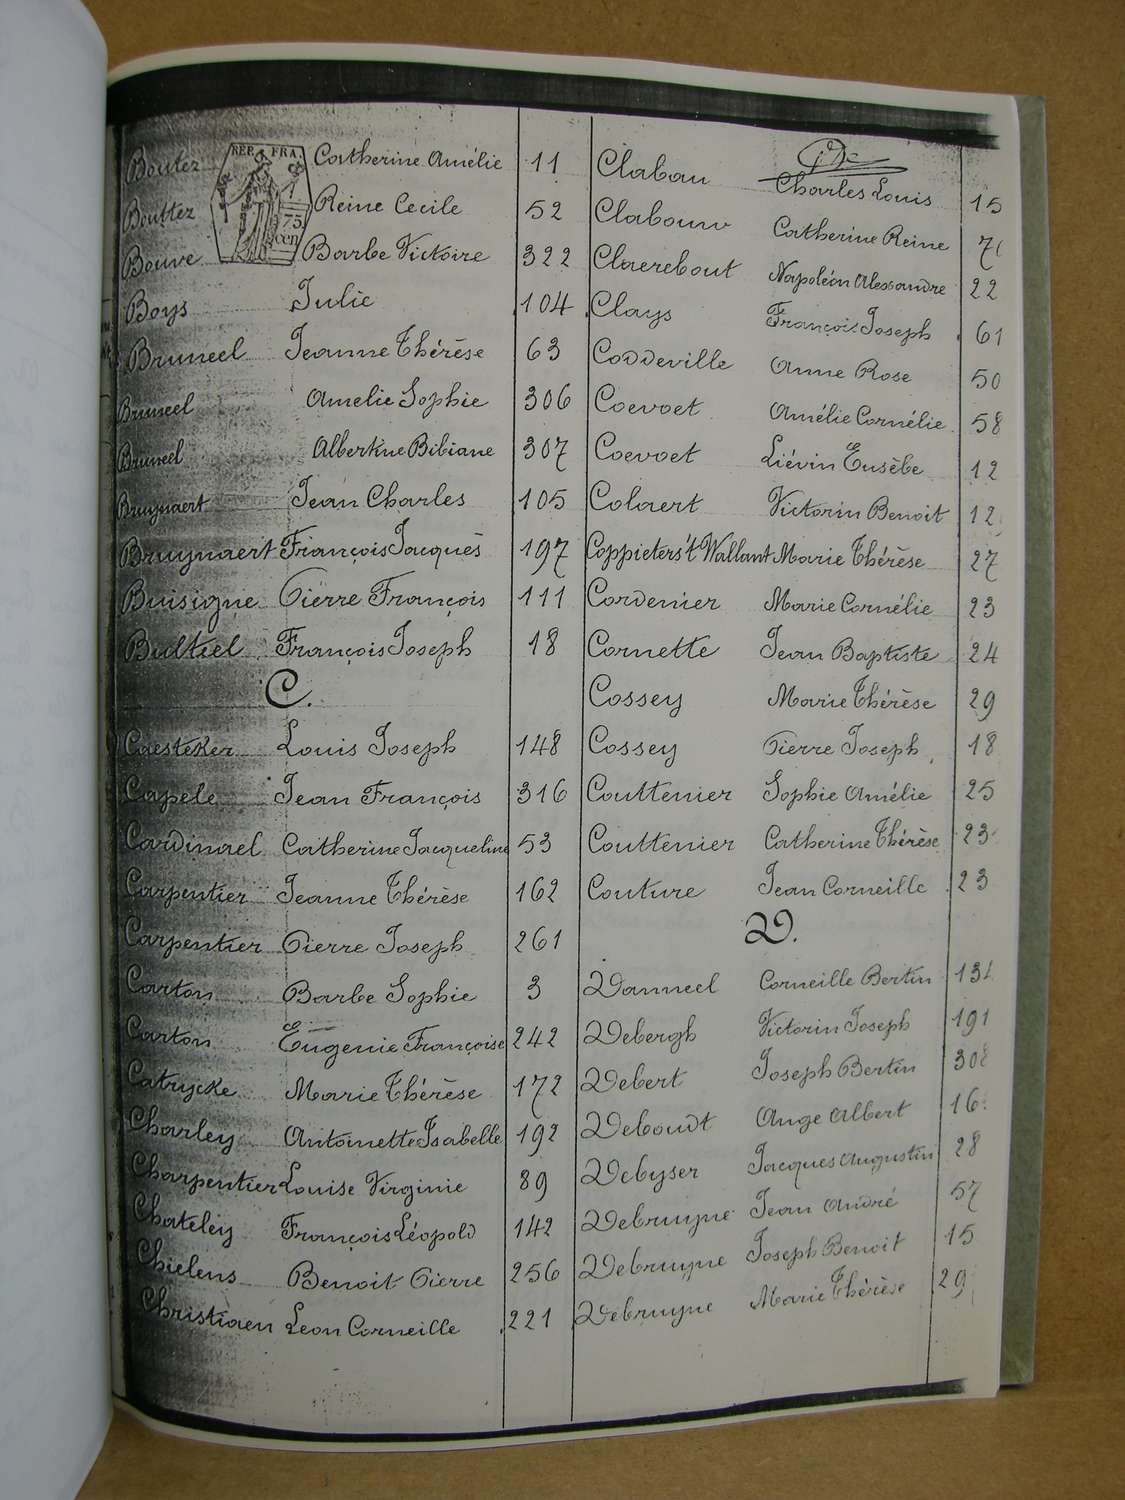 REP. FRA.
75
cen
Boutez Catherine Amélie 11
Bouttez Reine Cecile 52
Bouve Barbe Victoire 322
Boys Julie 104
Bruneel Jeanne Thérèse 63
Bruneel Amelie Sophie 306
Bruneel Albertine Bibiane 307
Bruynaert Jean Charles 105
Bruynaert François Jacques 197
Buisigne Pierre François 111
Bultiel François Joseph 18
C.
Caesteker Louis Joseph 148
Capele Jean François 316
Cardinael Catherine Jacqueline 53
Carpentier Jeanne Thérèse 162
Carpentier Pierre Joseph 261
Carton Barbe Sophie 3
Carton Eugenie Françoise 242
Catrycke Marie Thérèse 172
Charley Antoinette Isabelle 192
Charpentier Louise Virginie 89
Chateley François Léopold 142
Chielens Benoit Pierre 256
Christiaen Leon Corneille 221
Clabau Charles Louis 15
Clabouw Catherine Reine 7
Claerebout Napoléon Alexandre 22
Clays François Joseph 61
Coddeville Anne Rose 50
Coevoet Amélie Cornélie 58
Coevoet Liévin Eusèbe 12
Colaert Victorin Benoit 12
Coppieters't Wallant Marie Thérèse 27
Cordenier Marie Cornélie 23
Cornette Jean Baptiste 24
Cossey Marie Thérèse 29
Cossey Pierre Joseph 18
Couttenier Sophie Amélie 25
Couttenier Catherine Thérèse 23
Couture Jean Corneille 23
D.
Danneel Corneille Bertin 13
Debergh Victorin Joseph 191
Debert Joseph Bertin 308
Deboudt Ange Albert 16
Debyser Jacques Augustin 28
Debruyne Jean André 57
Debruyne Joseph Benoit 15
Debruyne Marie Thérèse 29